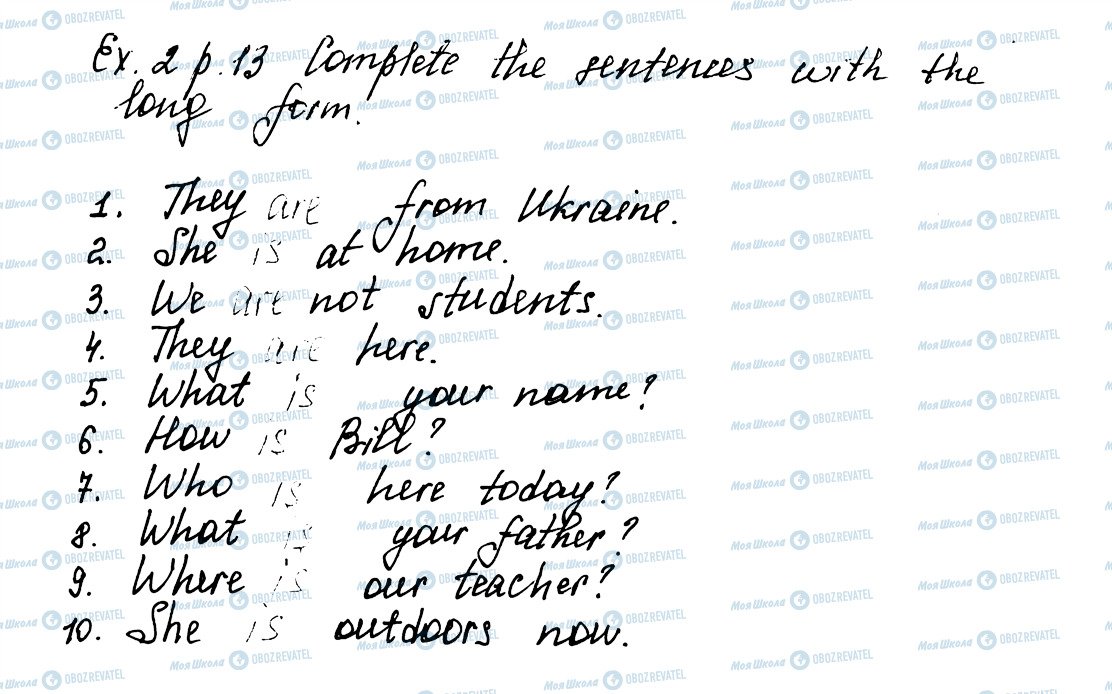 Ex. 2 p. 13 Complete the sentences with the
long form.
1. They are from Ukraine.
2. She is at home.
3. We are not students.
4. They are here.
5. What is your name?
6. How is Bill?
7. Who is here today?
8. What is your father?
9. Where is our teacher?
10. She is outdoors now.